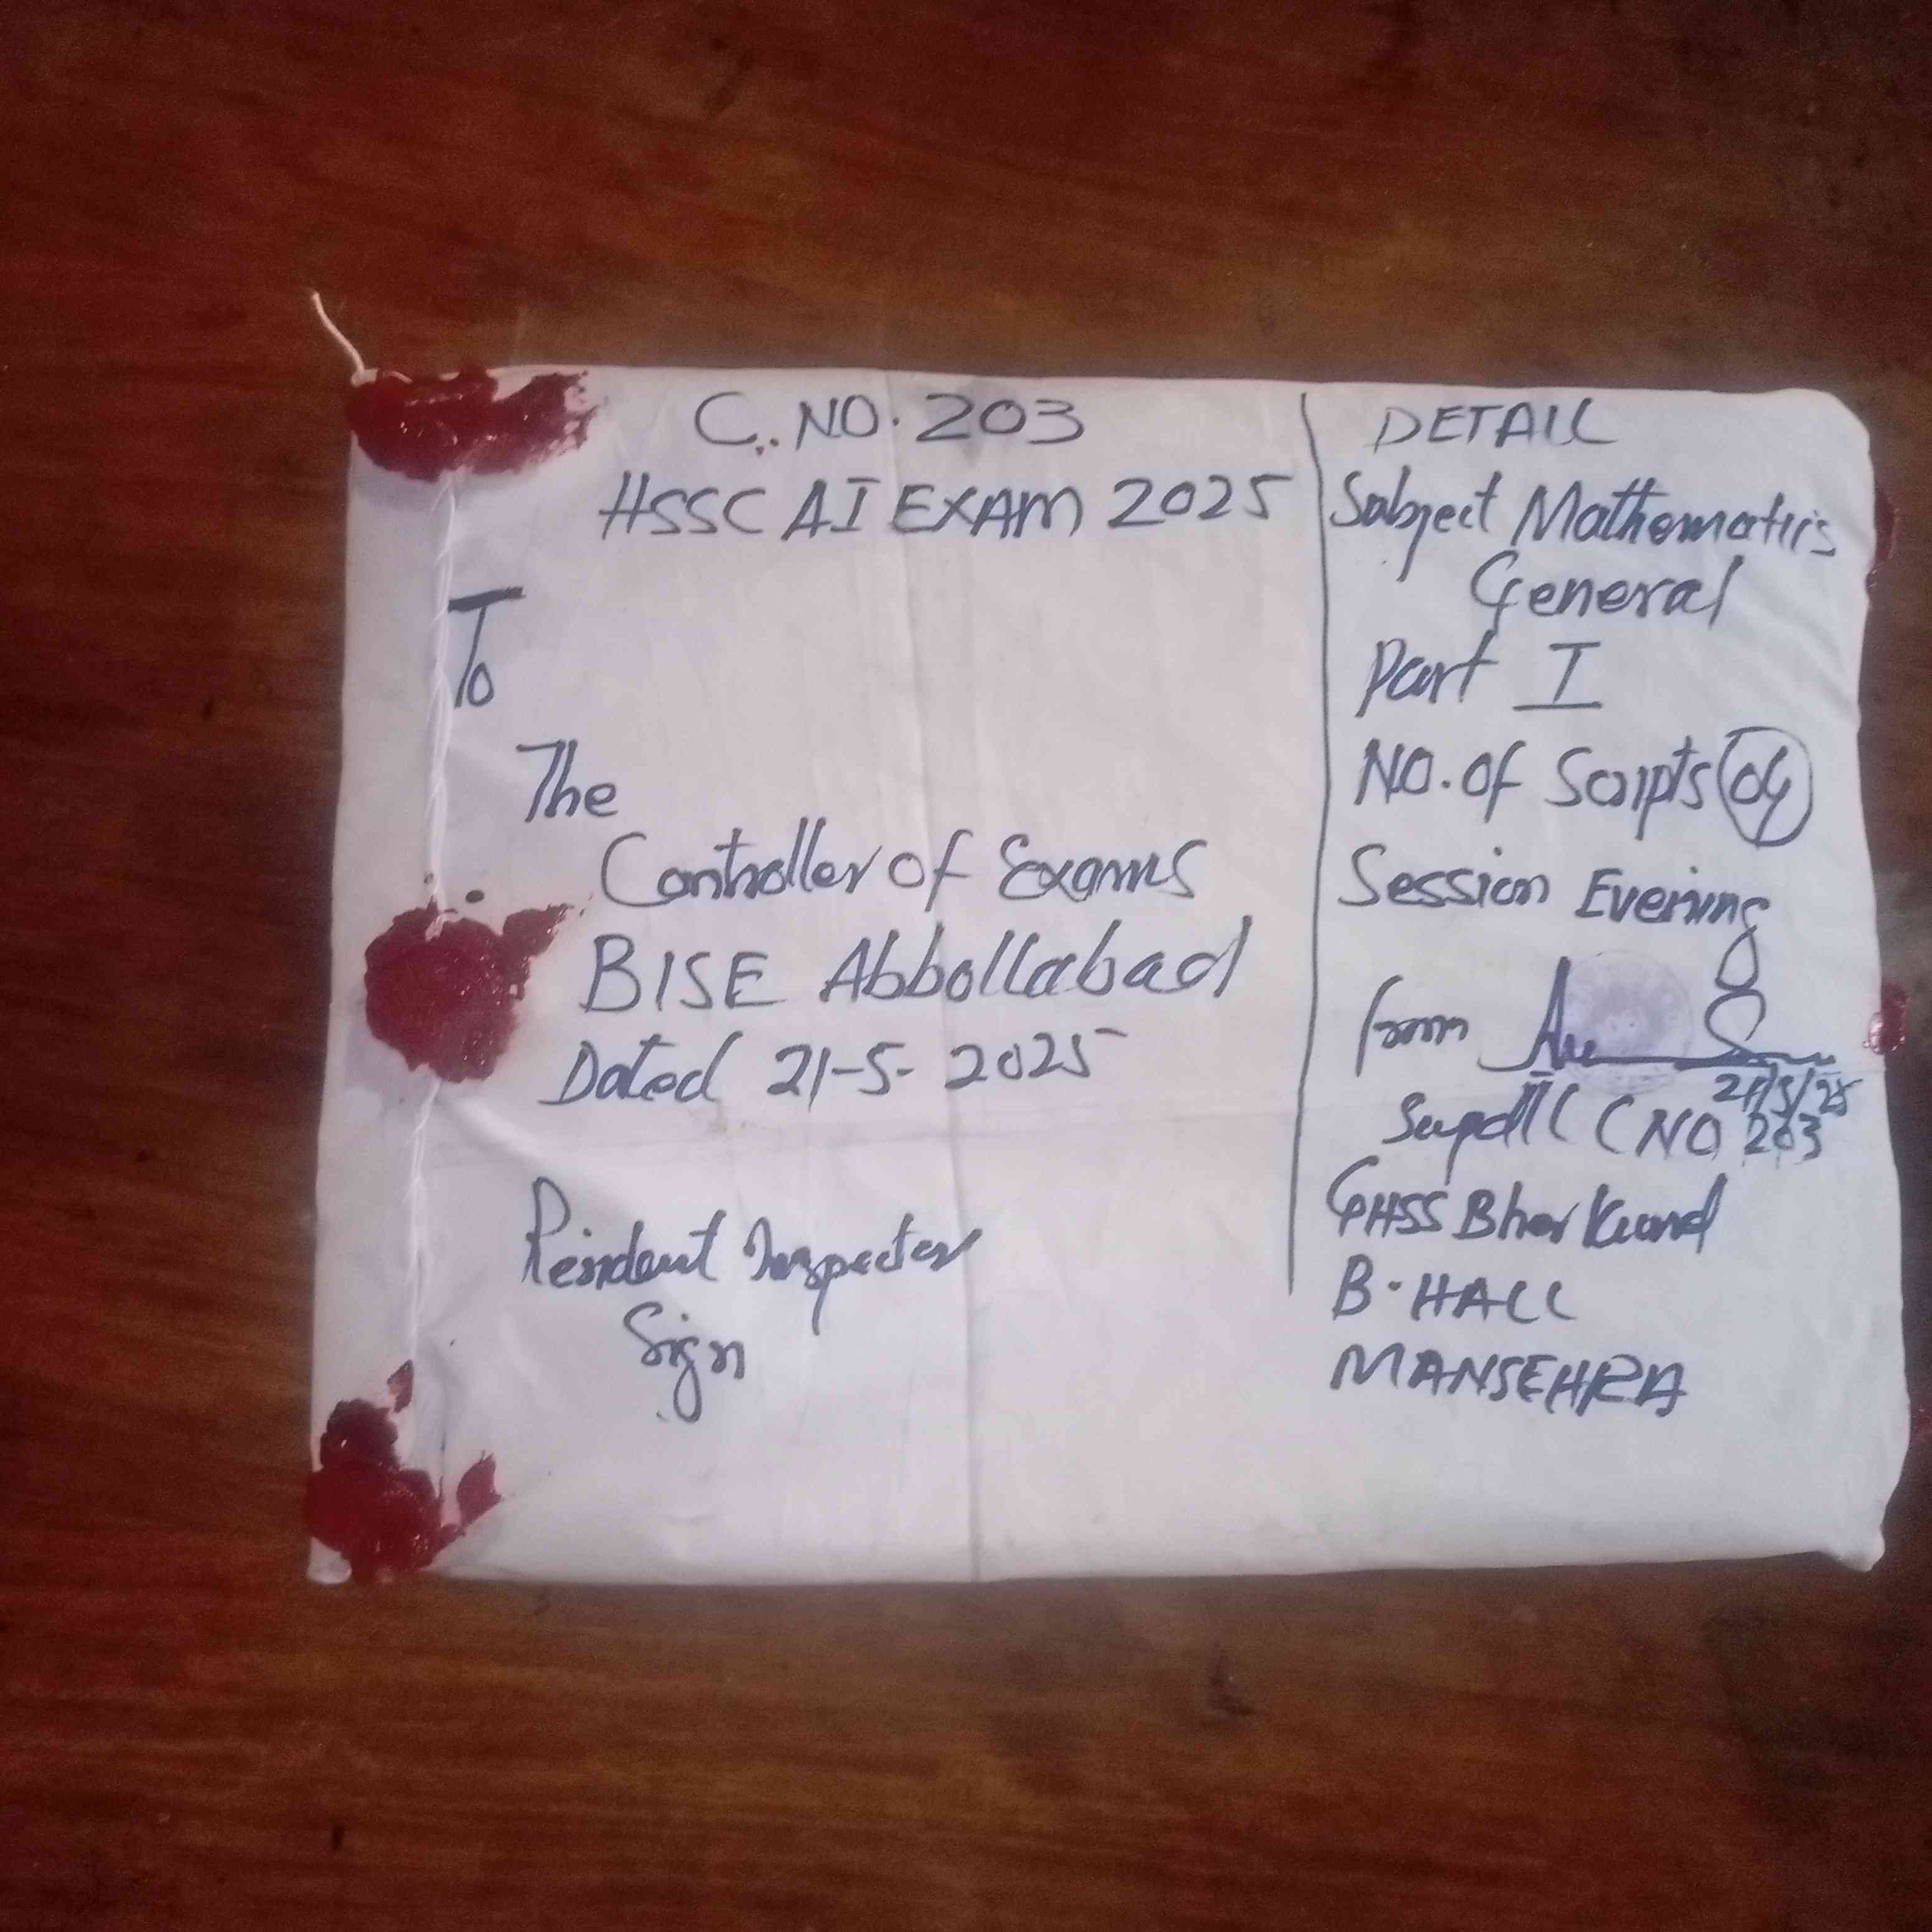 C. NO. 203
HSSC AI EXAM 2025
To
The
Controller of Exams
BISE Abbottabad
Dated 21-5-2025
Resident Inspector
Sign
DETAIL
Subject Mathematics
General
Part I
NO. of Scripts 04
Session Evening
from
21/5/25
Supdtt C NO 203
GHSS Bher Kund
B. HALL
MANSEHRA